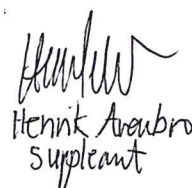 Henrik Arenbro
Suppleant